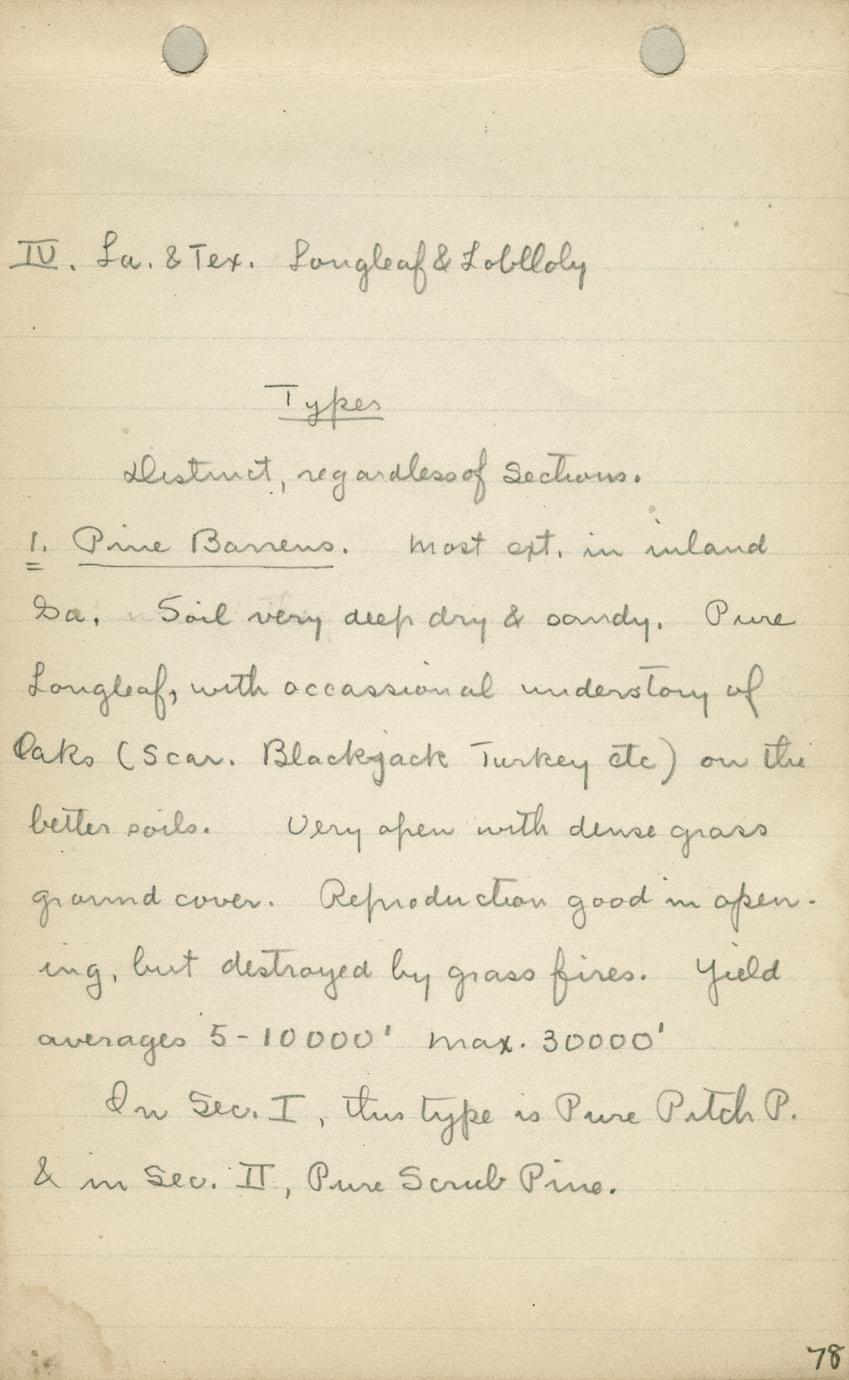 IV. La. & Tex. Longleaf & Loblloly
Types
Distinct, regardless of Sections.
1. Pine Barrens. Most ext. in inland
Ga. Soil very deep dry & sandy. Pure
Longleaf, with occassional understory of
Oaks (Scar. Blackjack Turkey etc) on the
better soils. Very open with dense grass
ground cover. Reproduction good in open-
ing, but destroyed by grass fires. Yield
averages 5-10000' Max. 30000'
In Sec. I, this type is Pure Pitch P.
& in Sec. II, Pure Scrub Pine.
78